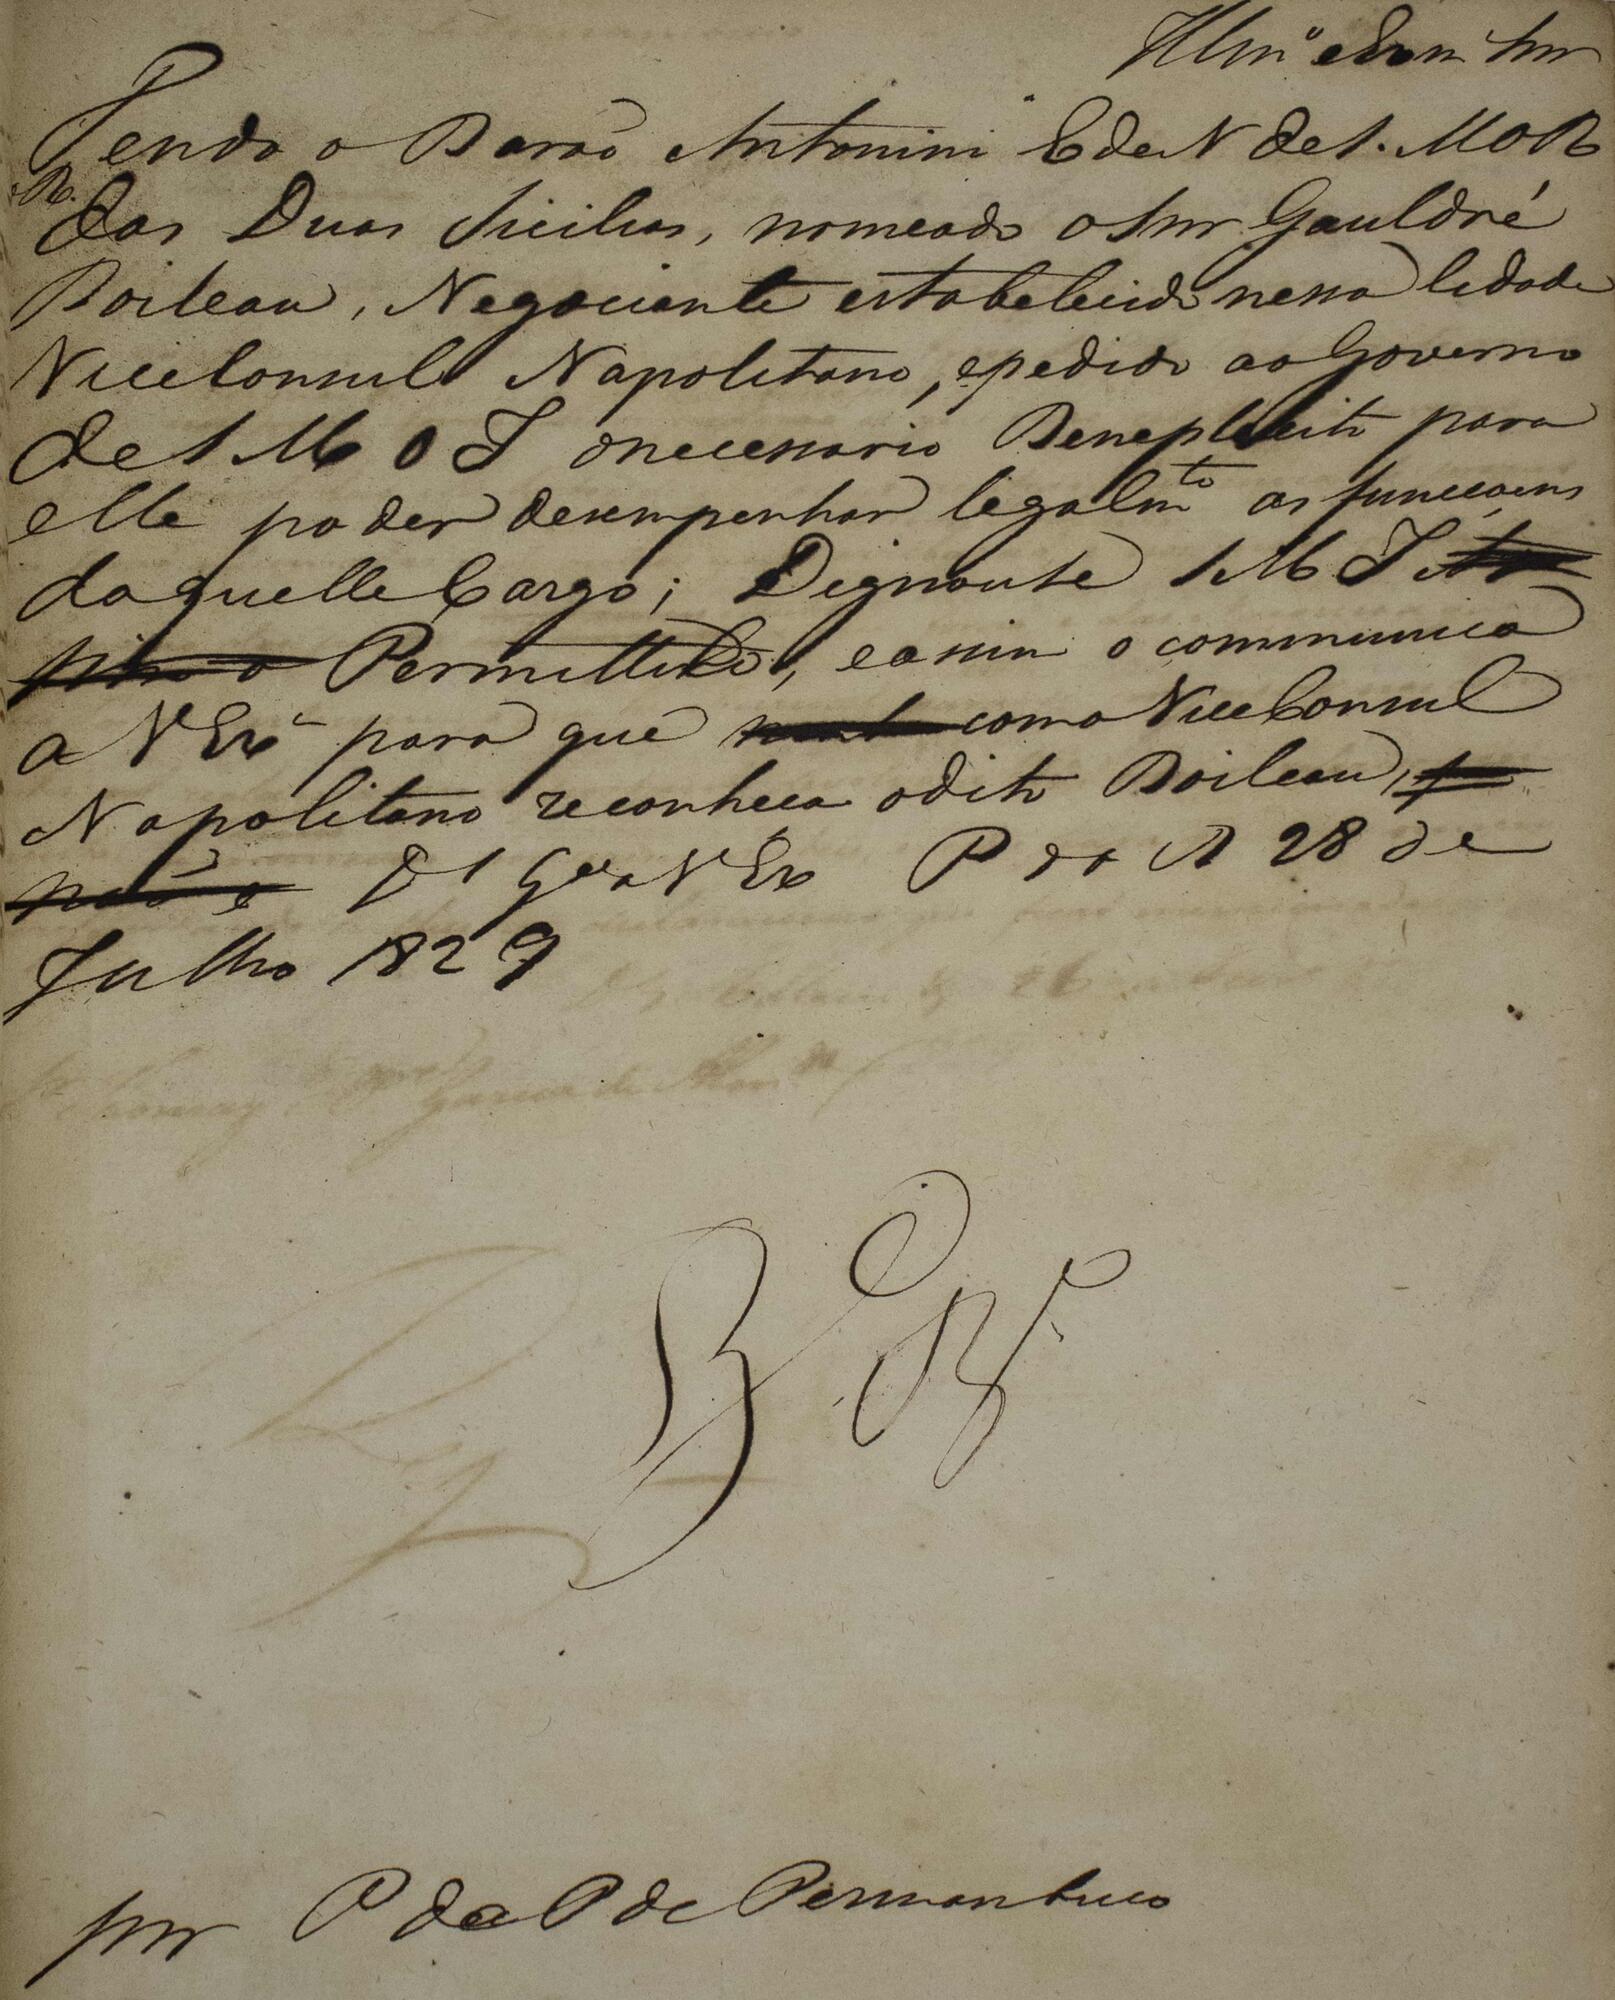 Illmo e Exmo Snr
Tendo o Barão Antonini E de N de S. M O R
R.
das Duas Sicilias, nomeado o Snr Gauldré
Boileau, Negociante estabelecido nessa Cidade
Vice Consul Napolitano, e pedido ao Governo
de S M O I o necessario Beneplacito para
elle poder desempenhar legalmto as funccoens
daquelle Cargo; Dignouse S M I
Permittilo, e assim o communico
a V Exa para que como Vice Consul
Napolitano reconheca o dito Boileau,
Ds Gde a V Ex P do R 28 de
Julho 1829
Snr P da P de Pernambuco